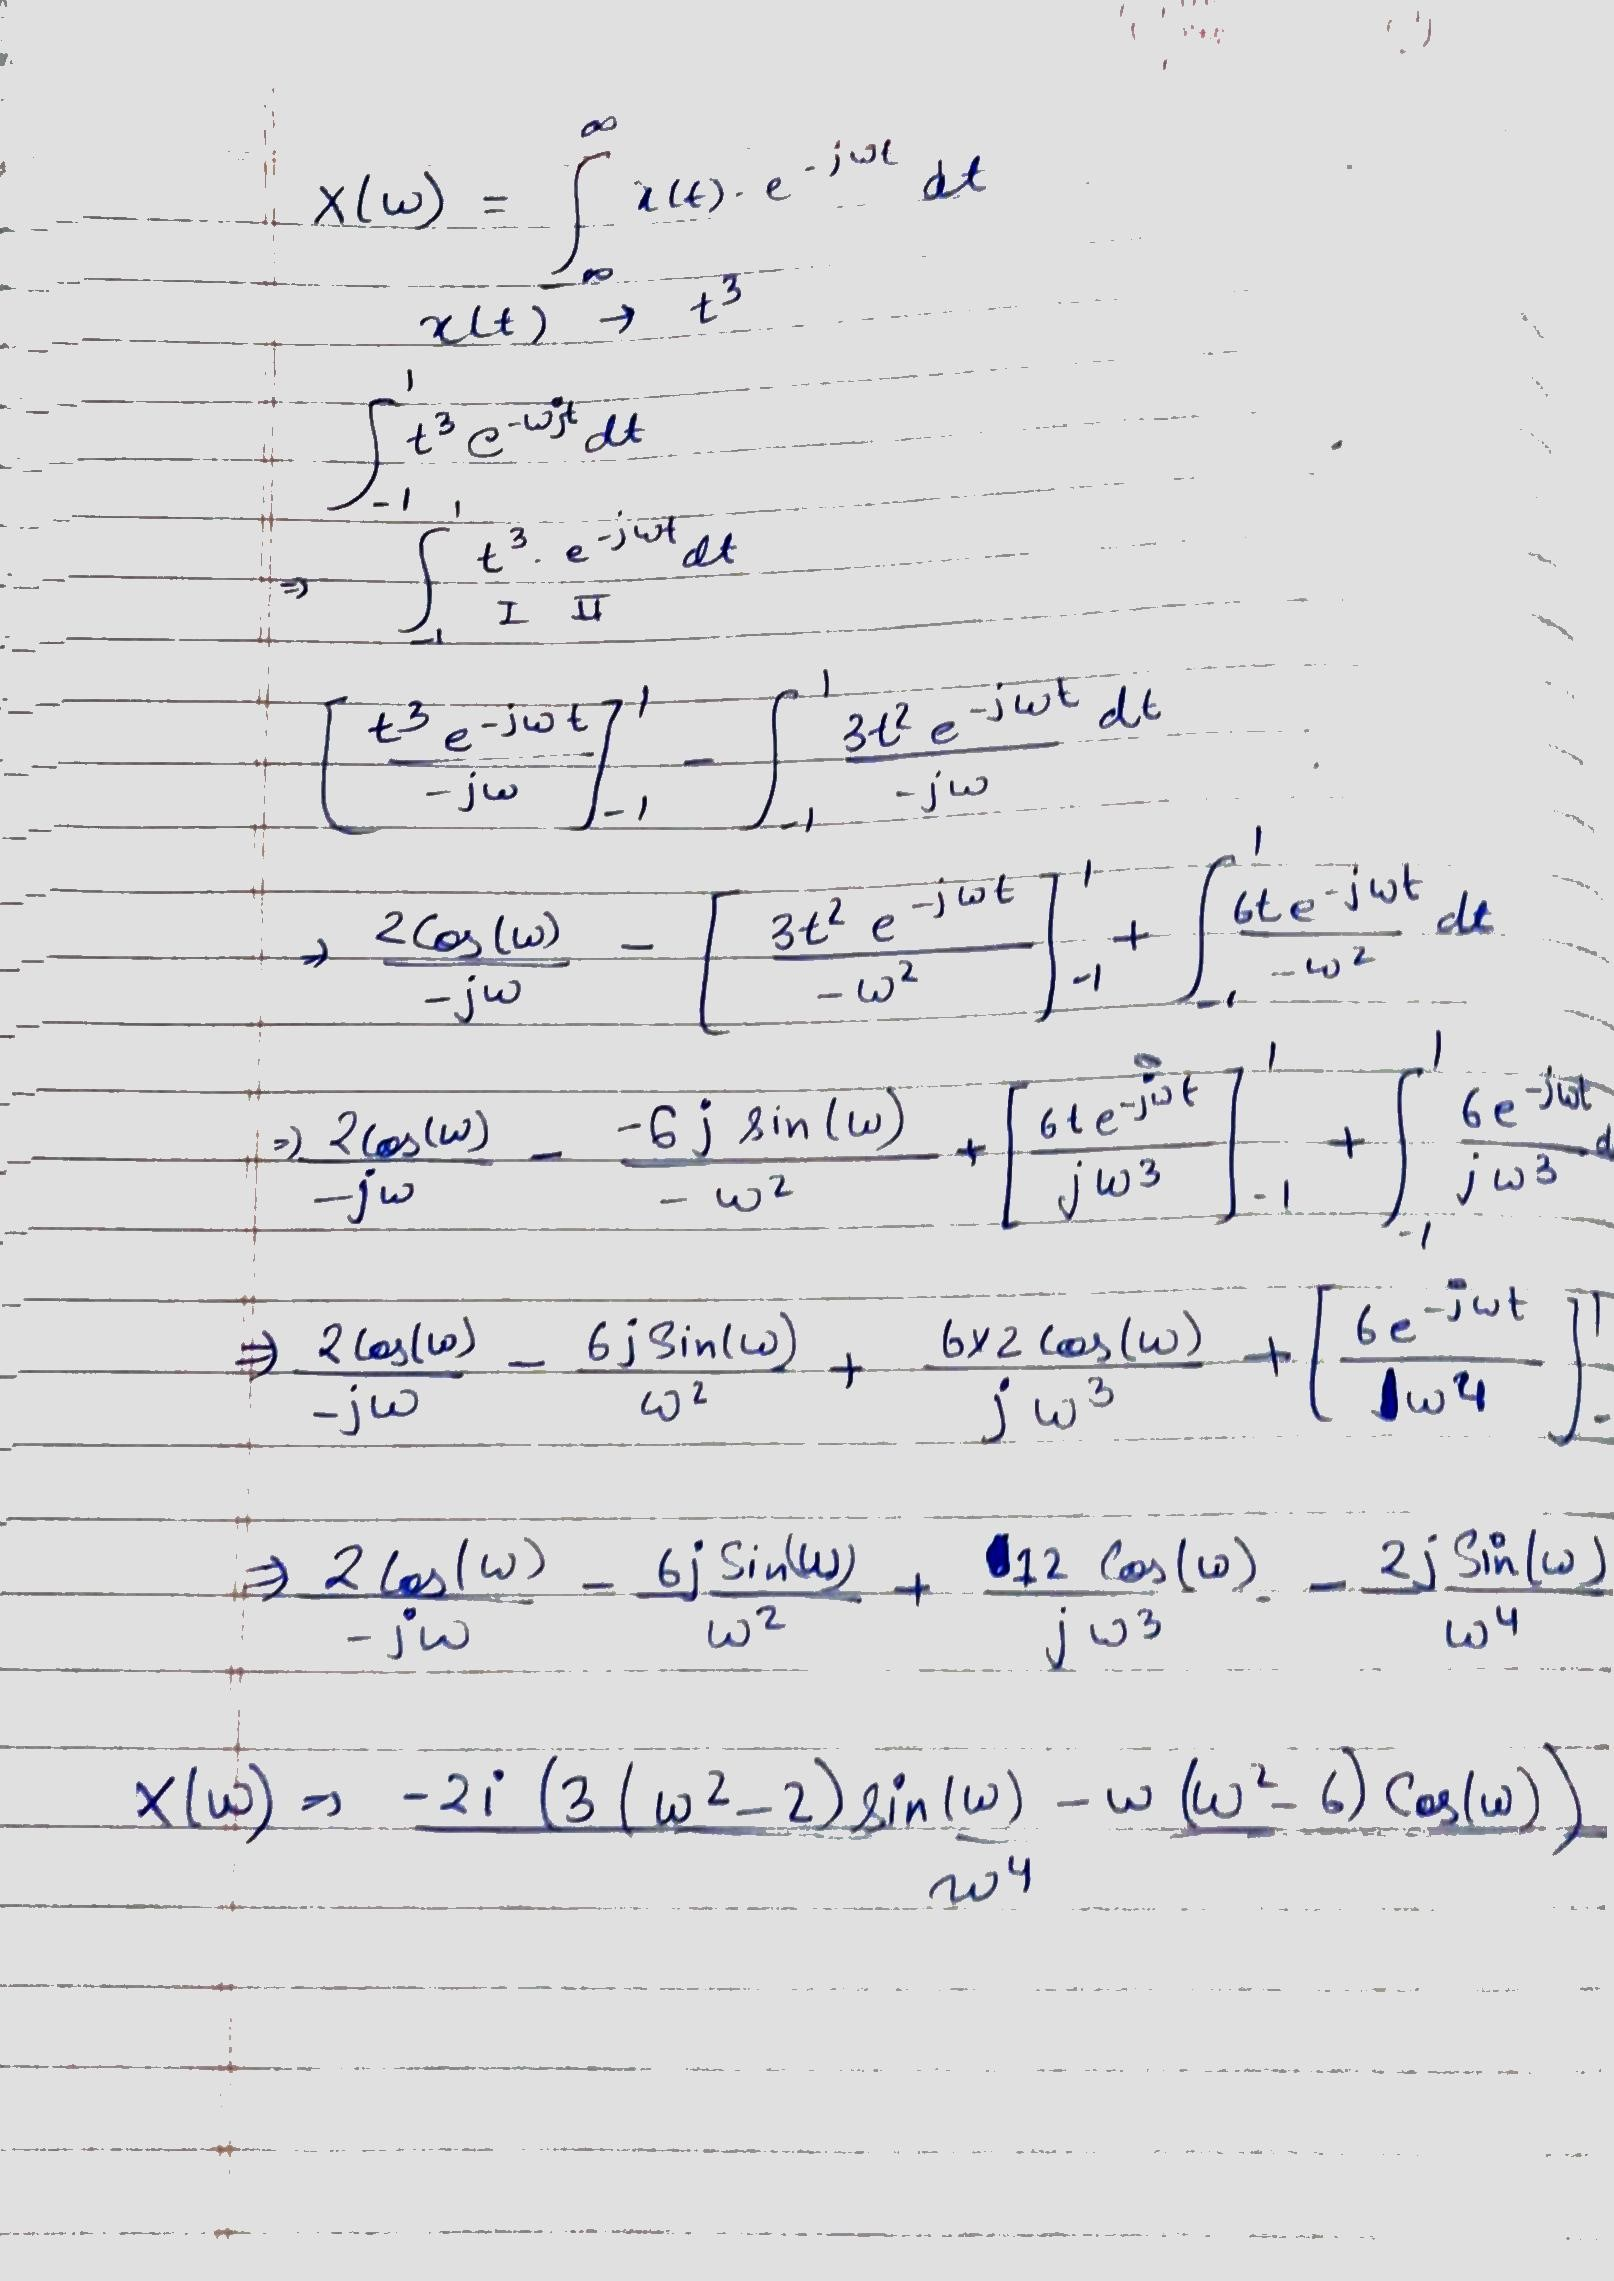 X(ω) = ∫_∞^∞ x(t). e^{-jωt} dt
x(t) → t³
∫_{-1}^{1} t³ e^{-ωjt} dt
⇒ ∫_{-1}^{1} t³. e^{-jωt} dt
I II
[t³ e^{-jωt} / -jω]_{-1}^{1} - ∫_{-1}^{1} 3t² e^{-jωt} / -jω dt
⇒ 2Cos(ω) / -jω - [3t² e^{-jωt} / -ω²]_{-1}^{1} + ∫_{-1}^{1} 6te^{-jωt} / -ω² dt
⇒ 2Cos(ω) / -jω - -6j sin(ω) / -ω² + [6te^{-jωt} / jω3]_{-1}^{1} + ∫_{-1}^{1} 6e^{-jωt} / jω3 d
⇒ 2Cos(ω) / -jω - 6j Sin(ω) / ω² + 6x2 Cos(ω) / jω³ + [6e^{-jωt} / ω4]_{-}^{1}
⇒ 2Cos(ω) / -jω - 6j Sin(ω) / ω² + 12 Cos(ω) / jω3 - 2j Sin(ω) / ω4
X(ω) ⇒ -2i (3(ω²-2)sin(ω) - ω(ω²-6)Cos(ω)) / ω4